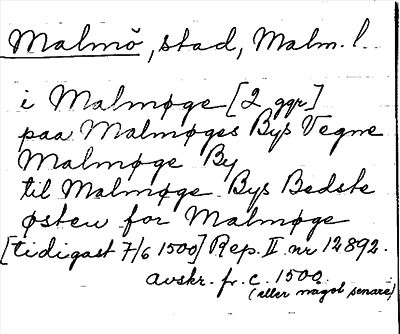 Malmö, stad, Malm. l.
i Malmøge [2 ggr]
paa Malmøges Bys Vegne
Malmøge By
til Malmøge Bys Bedste
østen for Malmøge
[tidigast 7/6 1500] Rep. II nr 12892.
avskr. fr. c. 1500
(eller något senare)